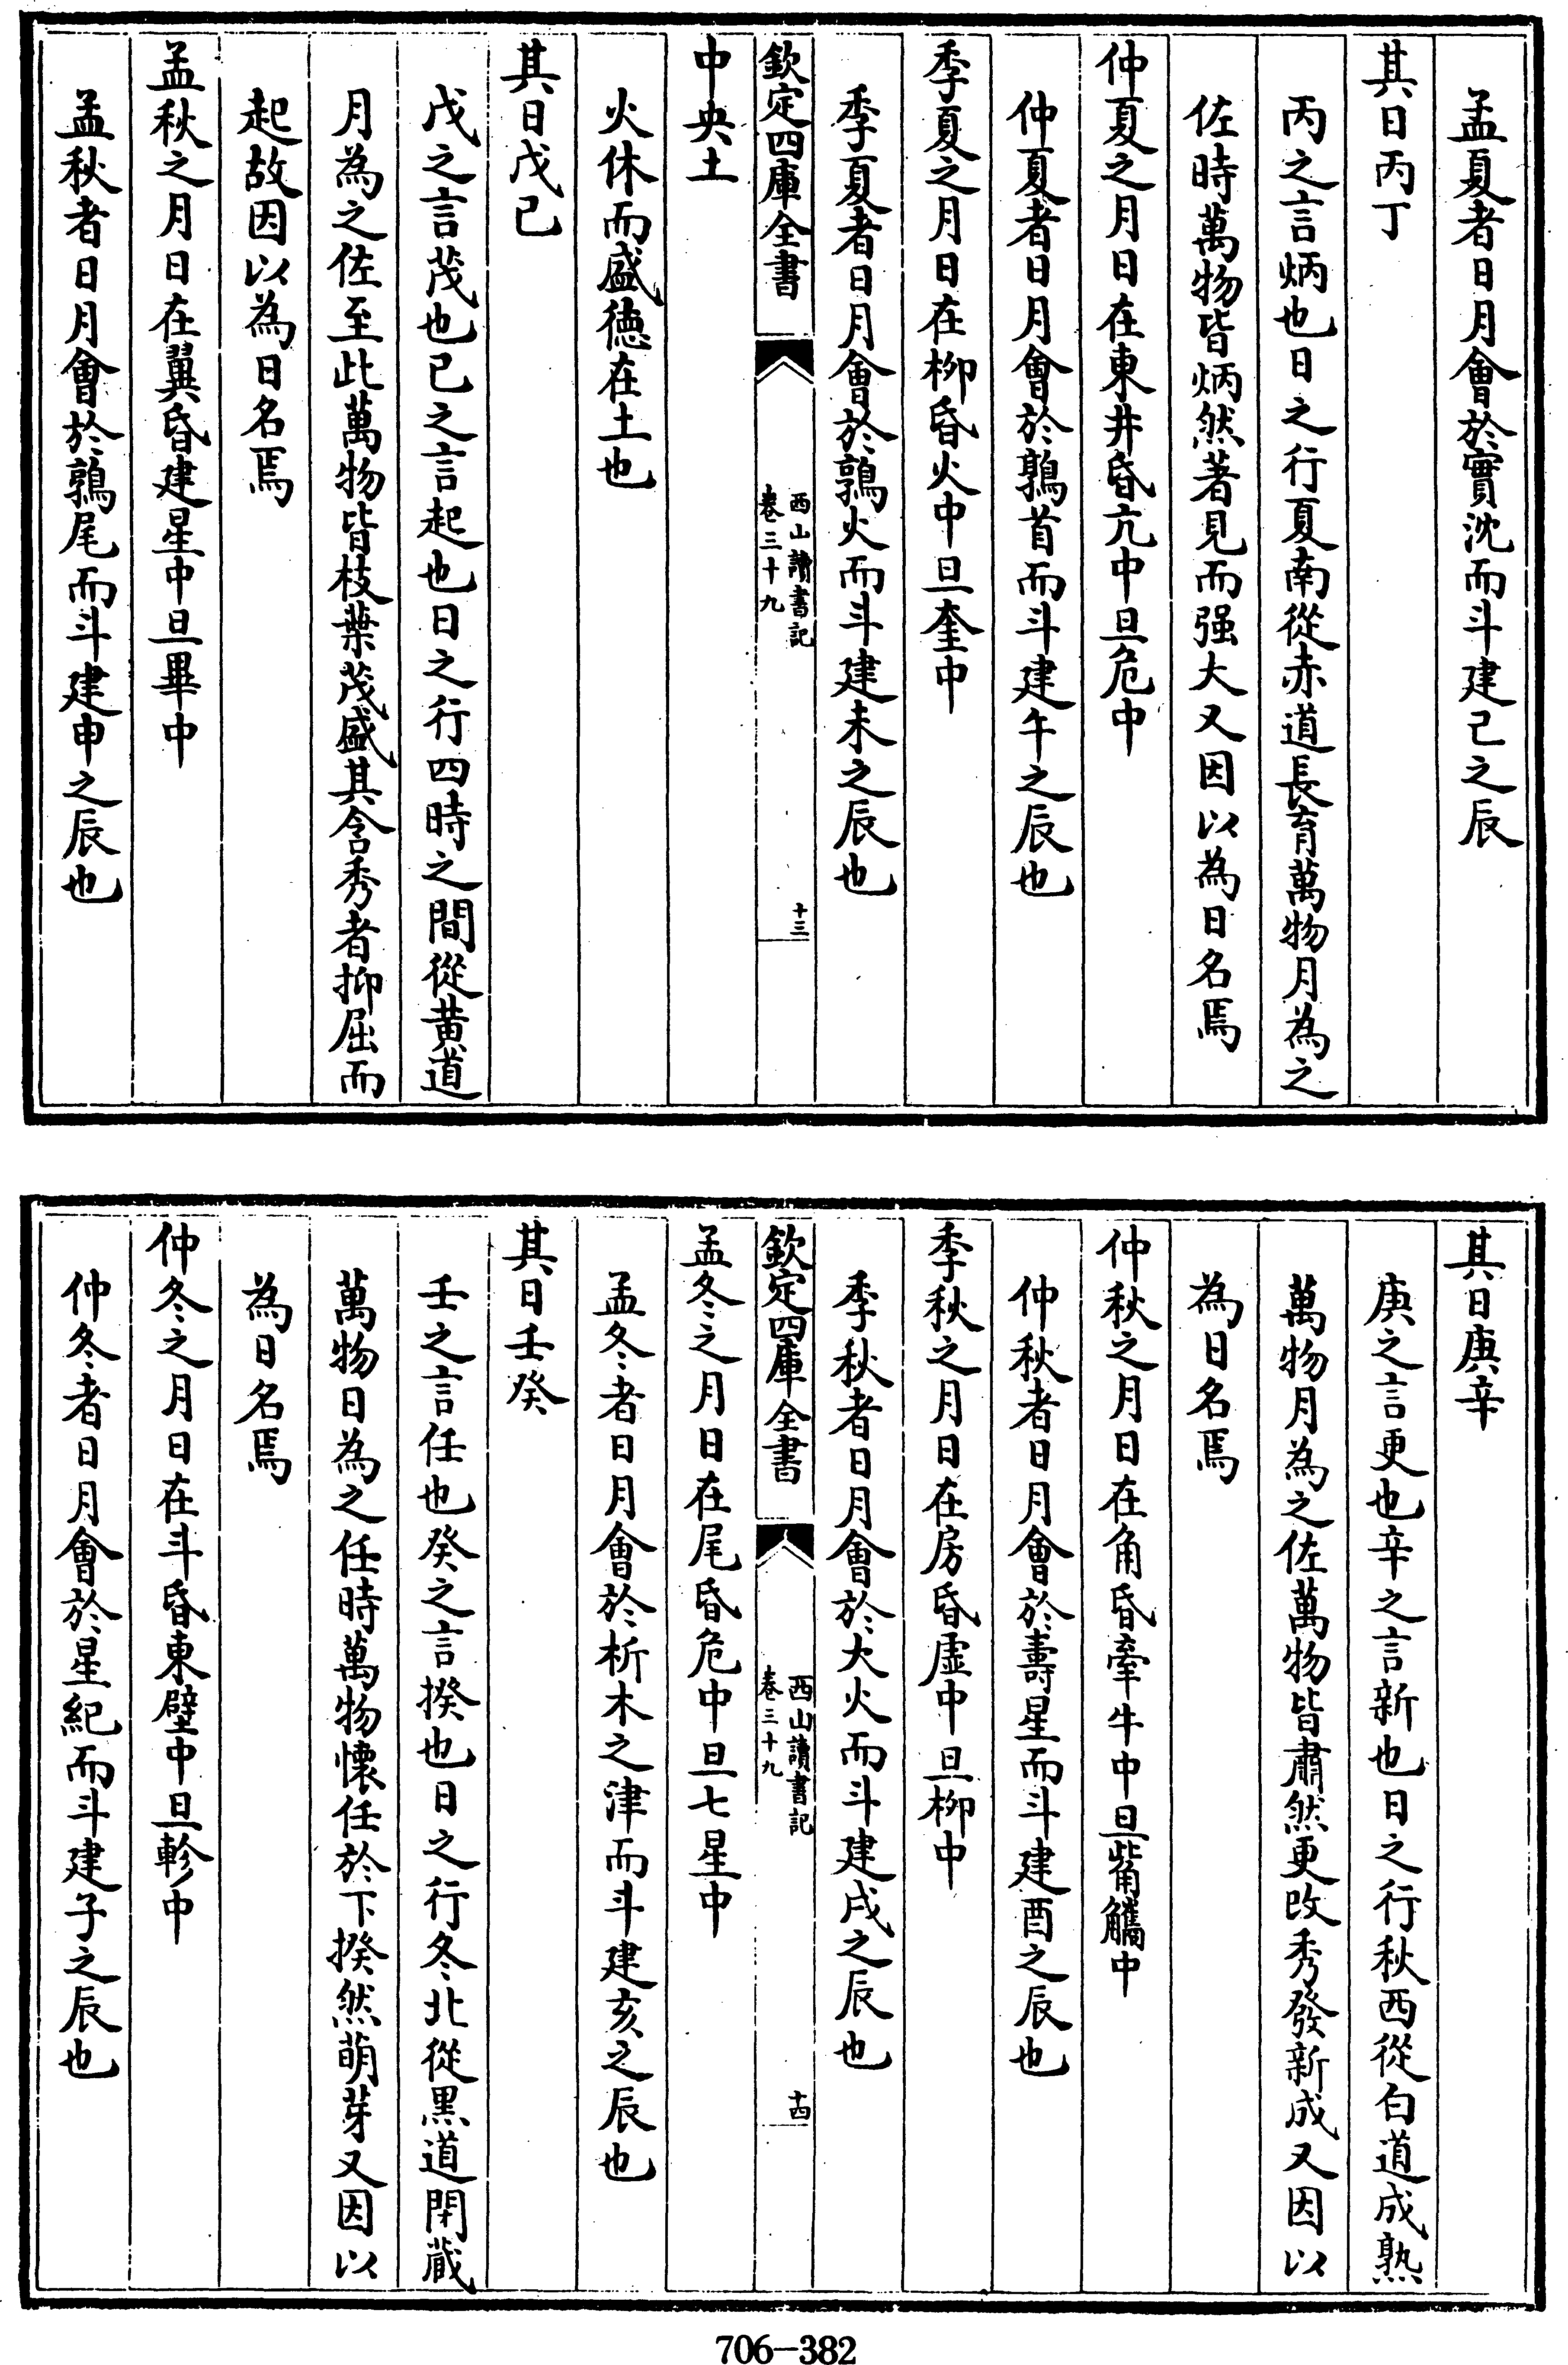 孟夏者日月會於實沈而斗建己之辰
其日丙丁
丙之言炳也日之行夏南從赤道長育萬物月為之
佐時萬物皆炳然著見而强大又因以為日名焉
仲夏之月日在東井昏亢中旦危中
仲夏者日月會於鶉首而斗建午之辰也
季夏之月日在柳昏火中旦奎中
季夏者日月會於鶉火而斗建未之辰也
欽定四庫全書
西山讀書記
卷三十九
十三
中央土
火休而盛德在土也
其日戊己
戊之言茂也已之言起也日之行四時之間從黃道
月為之佐至此萬物皆枝葉茂盛其含秀者抑屈而
起故因以為日名焉
孟秋之月日在翼昏建星中旦畢中
孟秋者日月會於鶉尾而斗建申之辰也
其日庚辛
庚之言更也辛之言新也日之行秋西從白道成熟
萬物月為之佐萬物皆肅然更改秀發新成又因以
為日名焉
仲秋之月日在角昏牽牛中旦觜觿中
仲秋者日月會於壽星而斗建酉之辰也
季秋之月日在房昏虛中旦柳中
季秋者日月會於大火而斗建戌之辰也
欽定四庫全書
西山讀書記
卷三十九
十四
孟冬之月日在尾昏危中旦七星中
孟冬者日月會於析木之津而斗建亥之辰也
其日壬癸
壬之言任也癸之言揆也日之行冬北從黑道閉藏
萬物日為之任時萬物懷任於下揆然萌芽又因以
為日名焉
仲冬之月日在斗昏東壁中旦軫中
仲冬者日月會於星紀而斗建子之辰也
706-382